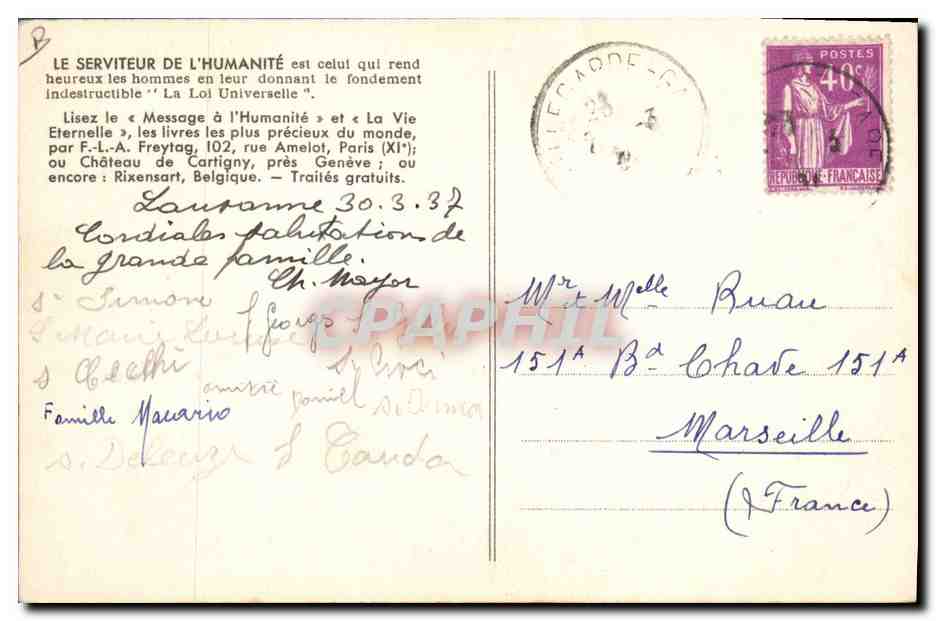 LE SERVITEUR DE L'HUMANITÉ est celui qui rend
heureux les hommes en leur donnant le fondement
indestructible " La Loi Universelle ".
Lisez le « Message à l'Humanité » et « La Vie
Eternelle », les livres les plus précieux du monde,
par F.-L.-A. Freytag, 102, rue Amelot, Paris (XIe);
ou Château de Cartigny, près Genève ; ou
encore : Rixensart, Belgique. — Traités gratuits.
Lausanne 30.3.37
Cordiales salutations de
la grande famille.
Ch. Mayor
Simone
Georgs
Famille Macario
s. Deleuze
POSTES
40c
REPUBLIQUE FRANÇAISE
Mr & Melle Ruau
151A Bd Chave 151A
Marseille
(France)
CPAPHIL